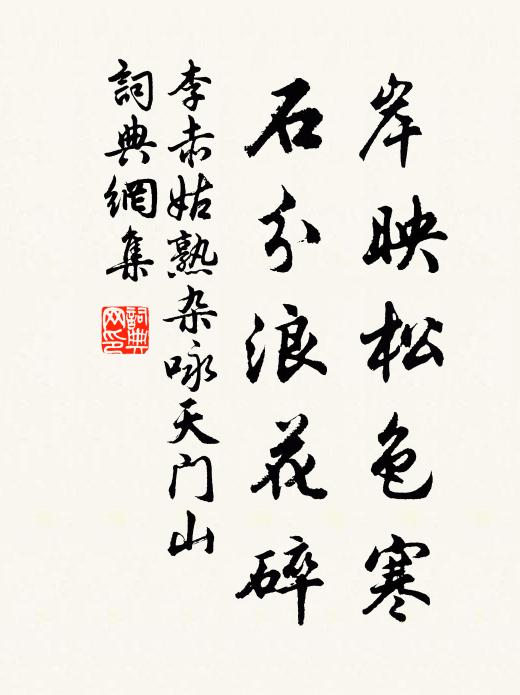 岸映松色寒
石分浪花碎
李赤姑熟杂咏天门山
詞典網集
詞典网印